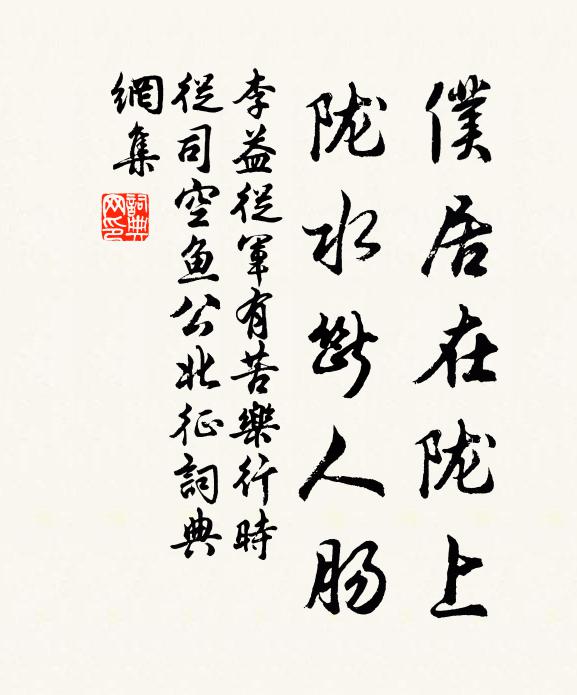 僕居在陇上
陇水斷人肠
李益從軍有苦樂行時
從司空鱼公北征詞典
網集
詞典
网印